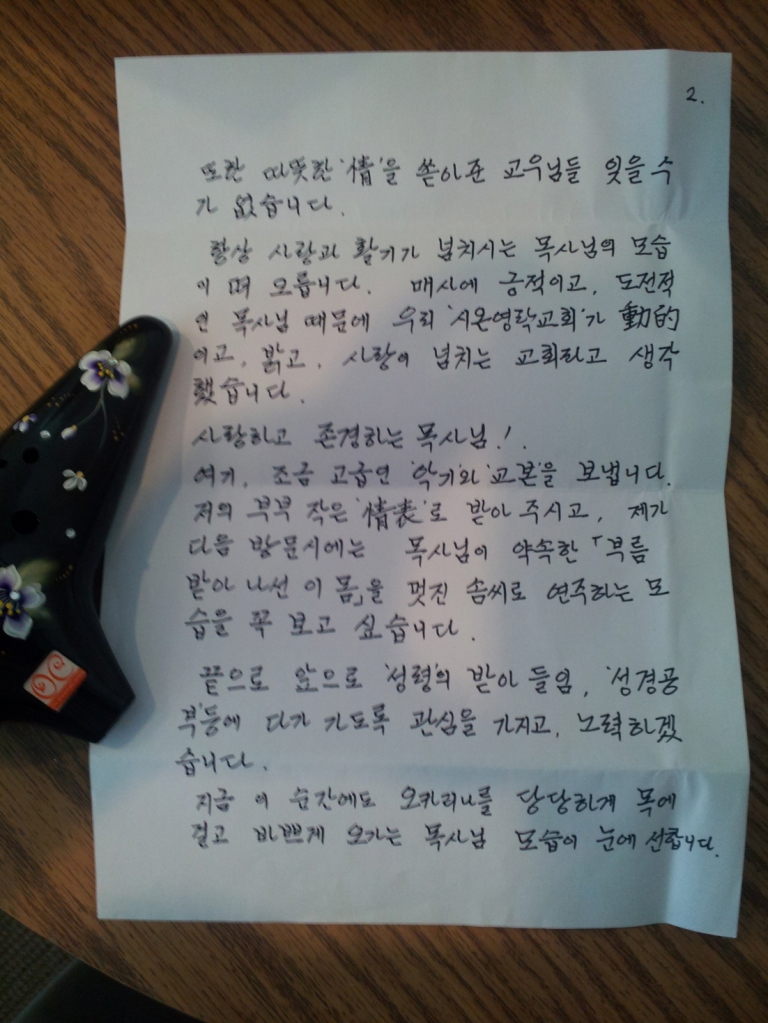 2.
또한 따뜻한 '情'을 쏟아준 교우님들 잊을 수
가 없습니다.
항상 사랑과 활기가 넘치시는 목사님의 모습
이 떠 오릅니다. 매사에 긍적이고, 도전적
인 목사님 때문에 우리 '시온영락교회'가 動的
이고, 밝고, 사랑이 넘치는 교회라고 생각
했습니다.
사랑하고 존경하는 목사님!.
여기, 조금 고급인 '악기'와 '교본'을 보냅니다.
저의 부부 작은 '情表'로 받아 주시고, 제가
다음 방문시에는 목사님이 약속한 「부름
받아 나선 이 몸」을 멋진 솜씨로 연주하는 모
습을 꼭 보고 싶습니다.
끝으로 앞으로 '성령'의 받아 들임, '성경공
부'등에 다가 가도록 관심을 가지고, 노력하겠
습니다.
지금 이 순간에도 오카리나를 당당하게 목에
걸고 바쁘게 오가는 목사님 모습이 눈에 선합니다.